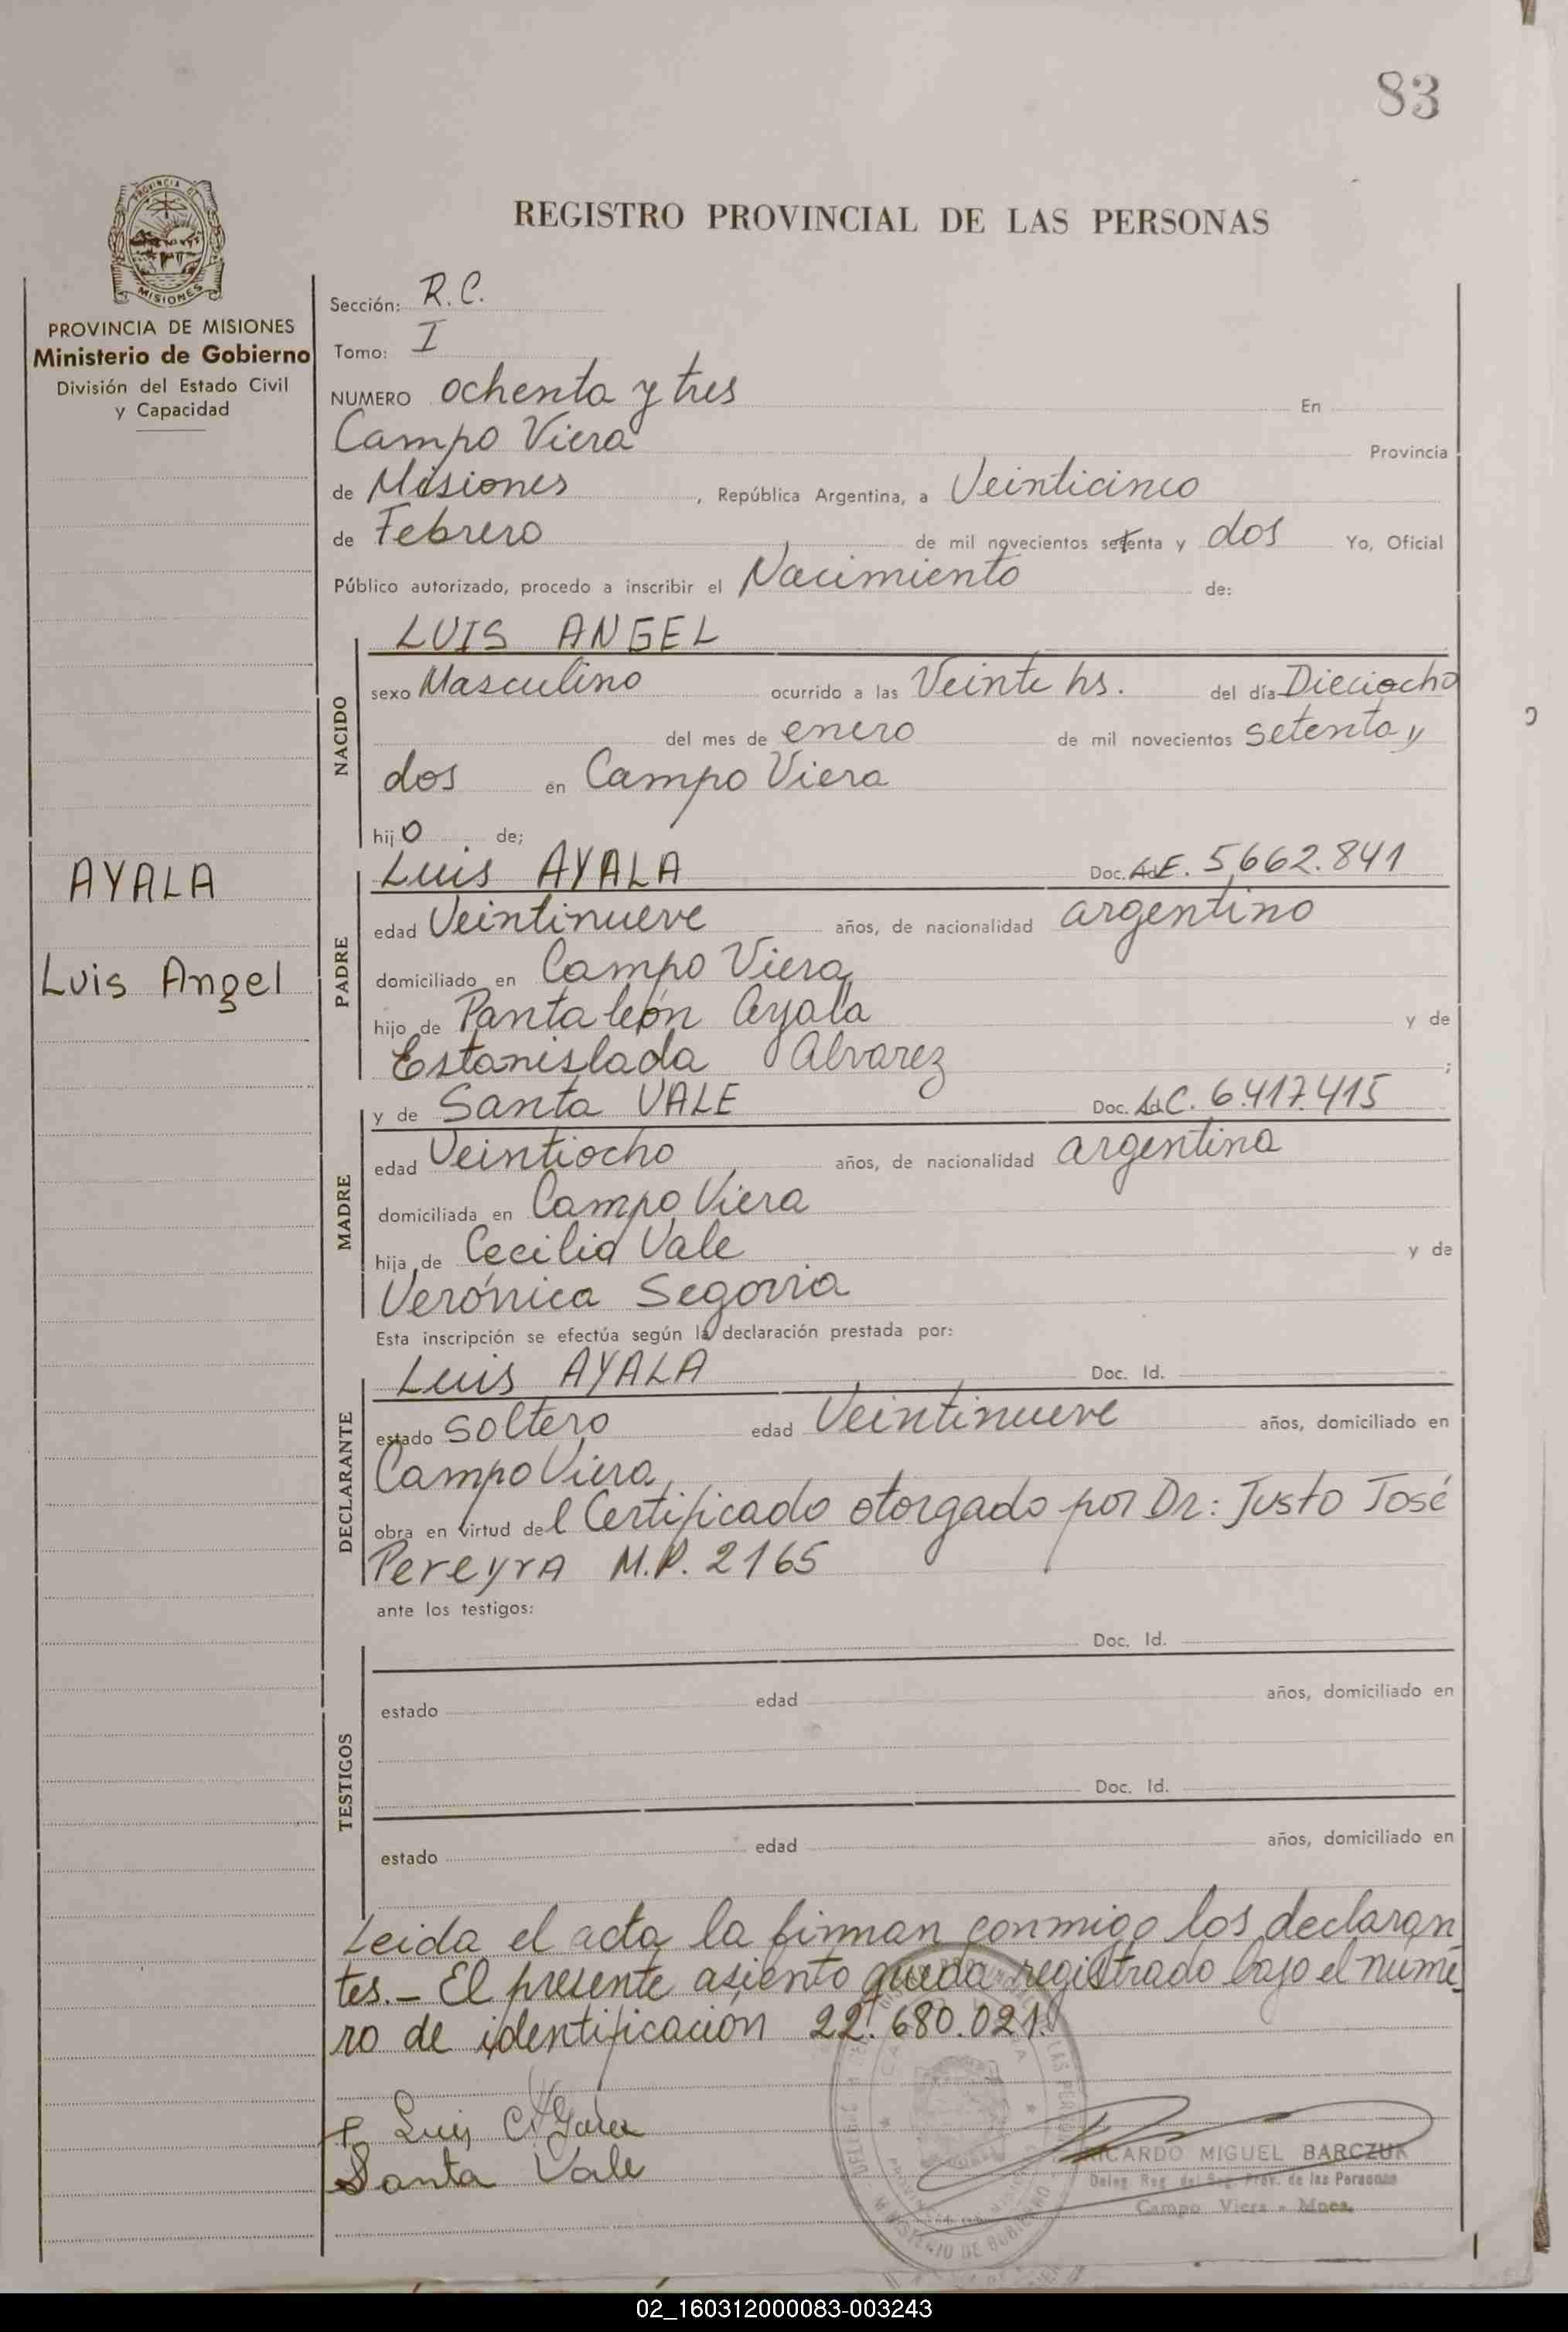 83
REGISTRO PROVINCIAL DE LAS PERSONAS
PROVINCIA DE MISIONES
Ministerio de Gobierno
División del Estado Civil
y Capacidad
Sección: R.C.
Tomo: I
NUMERO ochenta y tres En
Campo Viera Provincia
de Misiones, República Argentina, a Veinticinco
de Febrero de mil novecientos setenta y dos Yo, Oficial
Público autorizado, procedo a inscribir el Nacimiento de:
NACIDO
LUIS ANGEL
sexo Masculino ocurrido a las Veinte hs. del día Dieciocho
del mes de enero de mil novecientos setenta y
dos en Campo Viera
hijo de;
AYALA
Luis Angel
PADRE
Luis AYALA Doc. L.E. 5,662.841
edad Veintinueve años, de nacionalidad argentino
domiciliado en Campo Viera
hijo de Pantaleón Ayala y de
Estanislada Alvarez ;
MADRE
y de Santa VALE Doc. L.C. 6.417.415
edad Veintiocho años, de nacionalidad argentina
domiciliada en Campo Viera
hija de Cecilio Vale y de
Verónica Segovia
Esta inscripción se efectúa según la declaración prestada por:
DECLARANTE
Luis AYALA Doc. Id.
estado soltero edad Veintinueve años, domiciliado en
Campo Viera
obra en virtud del Certificado otorgado por Dr: Justo José
Pereyra M.P. 2165
ante los testigos:
TESTIGOS
Doc. Id.
estado edad años, domiciliado en
Doc. Id.
estado edad años, domiciliado en
Leida el acta la firman conmigo los declaran
tes.- El presente asiento queda registrado bajo el núme
ro de identificación 22.680.021.
Luis Ayala
Santa Vale
RICARDO MIGUEL BARCZUK
Deleg. Reg. del Reg. Prov. de las Personas
Campo Viera - Mnes.
MINISTERIO DE GOBIERNO
02_160312000083-003243